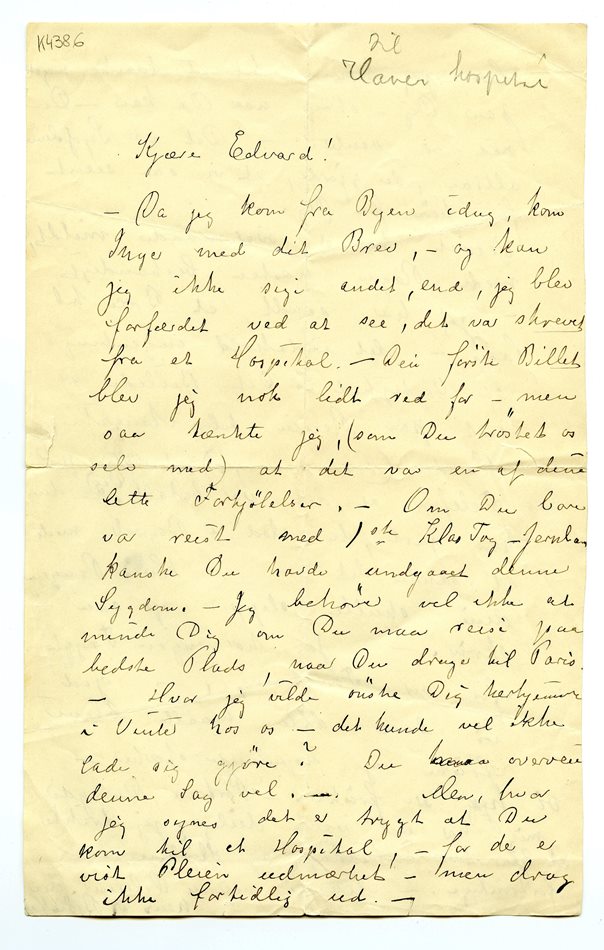 K4386
til
Haver hospital
Kjære Edvard!
– Da jeg kom fra Byen idag, kom
Inge med dit Brev, – og kan
jeg ikke sige andet, end, jeg blev
forfærdet ved at see, det var skrevet
fra et Hospital. – Den første Billet
blev jeg nok lidt ræd for – men
saa tænkte jeg, (som Du trøstet os
selv med) at det var en af dine
lette Forkjølelser. – Om Du bare
var reist med 1ste Klas Tog – Jernba
kanske Du havde undgaaet denne
Sygdom. – Jeg behøve vel ikke at
minde Dig om Du maa reise paa
bedste Plads, naar Du drage til Paris.
– Hvor jeg vilde ønske Dig herhjemme
i Vinter hos os – det kunde vel ikke
lade sig gjøre? Du overveie
denne Sag vel. – Men, hvor
jeg synes det er trygt at Du
kom til et Hospital! – for de er
vist Pleien udmærket – men drag
ikke fortidlig ud. –